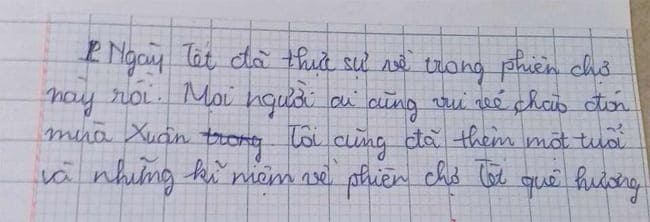 Ngày Tết đã thực sự về trong phiên chợ
này rồi. Mọi người ai cũng vui vẻ chào đón
mùa Xuân trong Tôi cũng đã thêm một tuổi
và những kỉ niệm về phiên chợ Tết quê hương